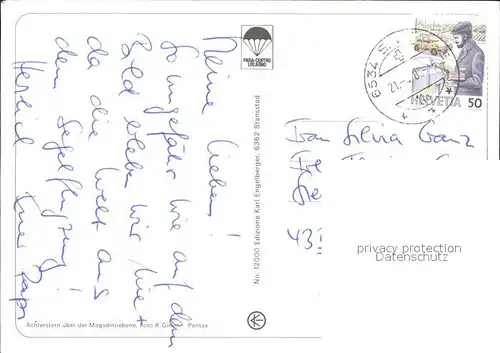 Meine Lieben!
So ungefähr wie auf dem
Bild erleben wir hier
da die Welt aus
dem Segelflugzeug!
Herzlich Euer Papi
Achterstern über der Magadinoebene, Foto R. Pentax
No. 12000 Edizione Karl Engelberger, 6362 Stansstad
PARA-CENTRO
LOCARNO
6534 S
21.
HELVETIA 50
Silvia
43
privacy protection
Datenschutz